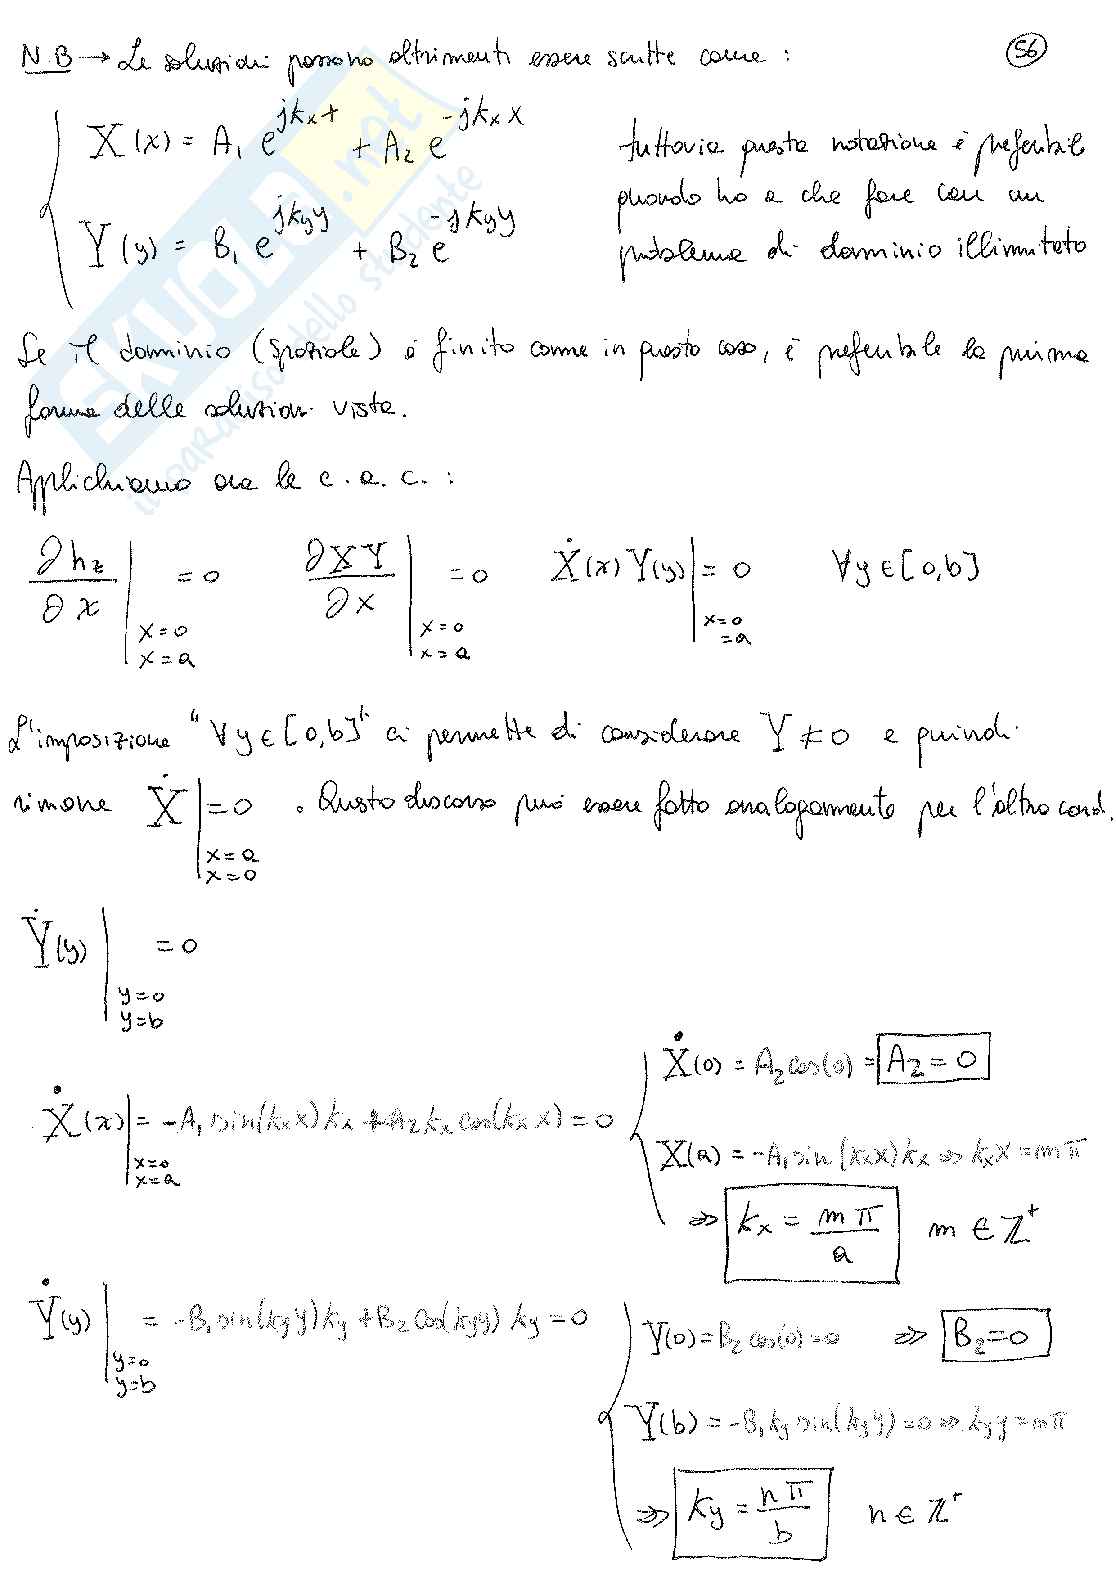 N.B → Le soluzioni possono altrimenti essere scritte come :
56
X(x) = A₁ e^{jkₓx} + A₂ e^{-jkₓx}
Y(y) = B₁ e^{jk_y y} + B₂ e^{-jk_y y}
tuttavia questa notazione è preferibile
quando ho a che fare con un
problema di dominio illimitato
Se il dominio (spaziale) è finito come in questo caso, è preferibile la prima
forma delle soluzioni vista.
Applichiamo ora le c.a.c. :
∂h_z/∂x | x=0 x=a = 0   ∂XY/∂x | x=0 x=a = 0   Ẋ(x) Y(y) | x=0 =a = 0   ∀y∈[0,b]
L'imposizione "∀y∈[0,b]" ci permette di considerare Y≠0 e quindi
rimane Ẋ | x=a x=0 = 0 . Questo discorso può essere fatto analogamente per l'altra cond.
Ẏ(y) | y=0 y=b = 0
Ẋ(0) = A₂ cos(0) = A₂ = 0
Ẋ(x) | x=0 x=a = -A₁ sin(kₓx) kₓ + A₂ kₓ cos(kₓx) = 0
X(a) = -A₁ sin(kₓx) kₓ ⇒ kₓx = mπ
⇒ kₓ = mπ/a   m ∈ ℤ⁺
Ẏ(y) | y=0 y=b = -B₁ sin(k_y y) k_y + B₂ cos(k_y y) k_y = 0
Y(0) = B₂ cos(0) = 0 ⇒ B₂ = 0
Y(b) = -B₁ k_y sin(k_y y) = 0 ⇒ k_y y = mπ
⇒ k_y = nπ/b   n ∈ ℤ⁺
SKUOLA.net
il paradiso dello studente